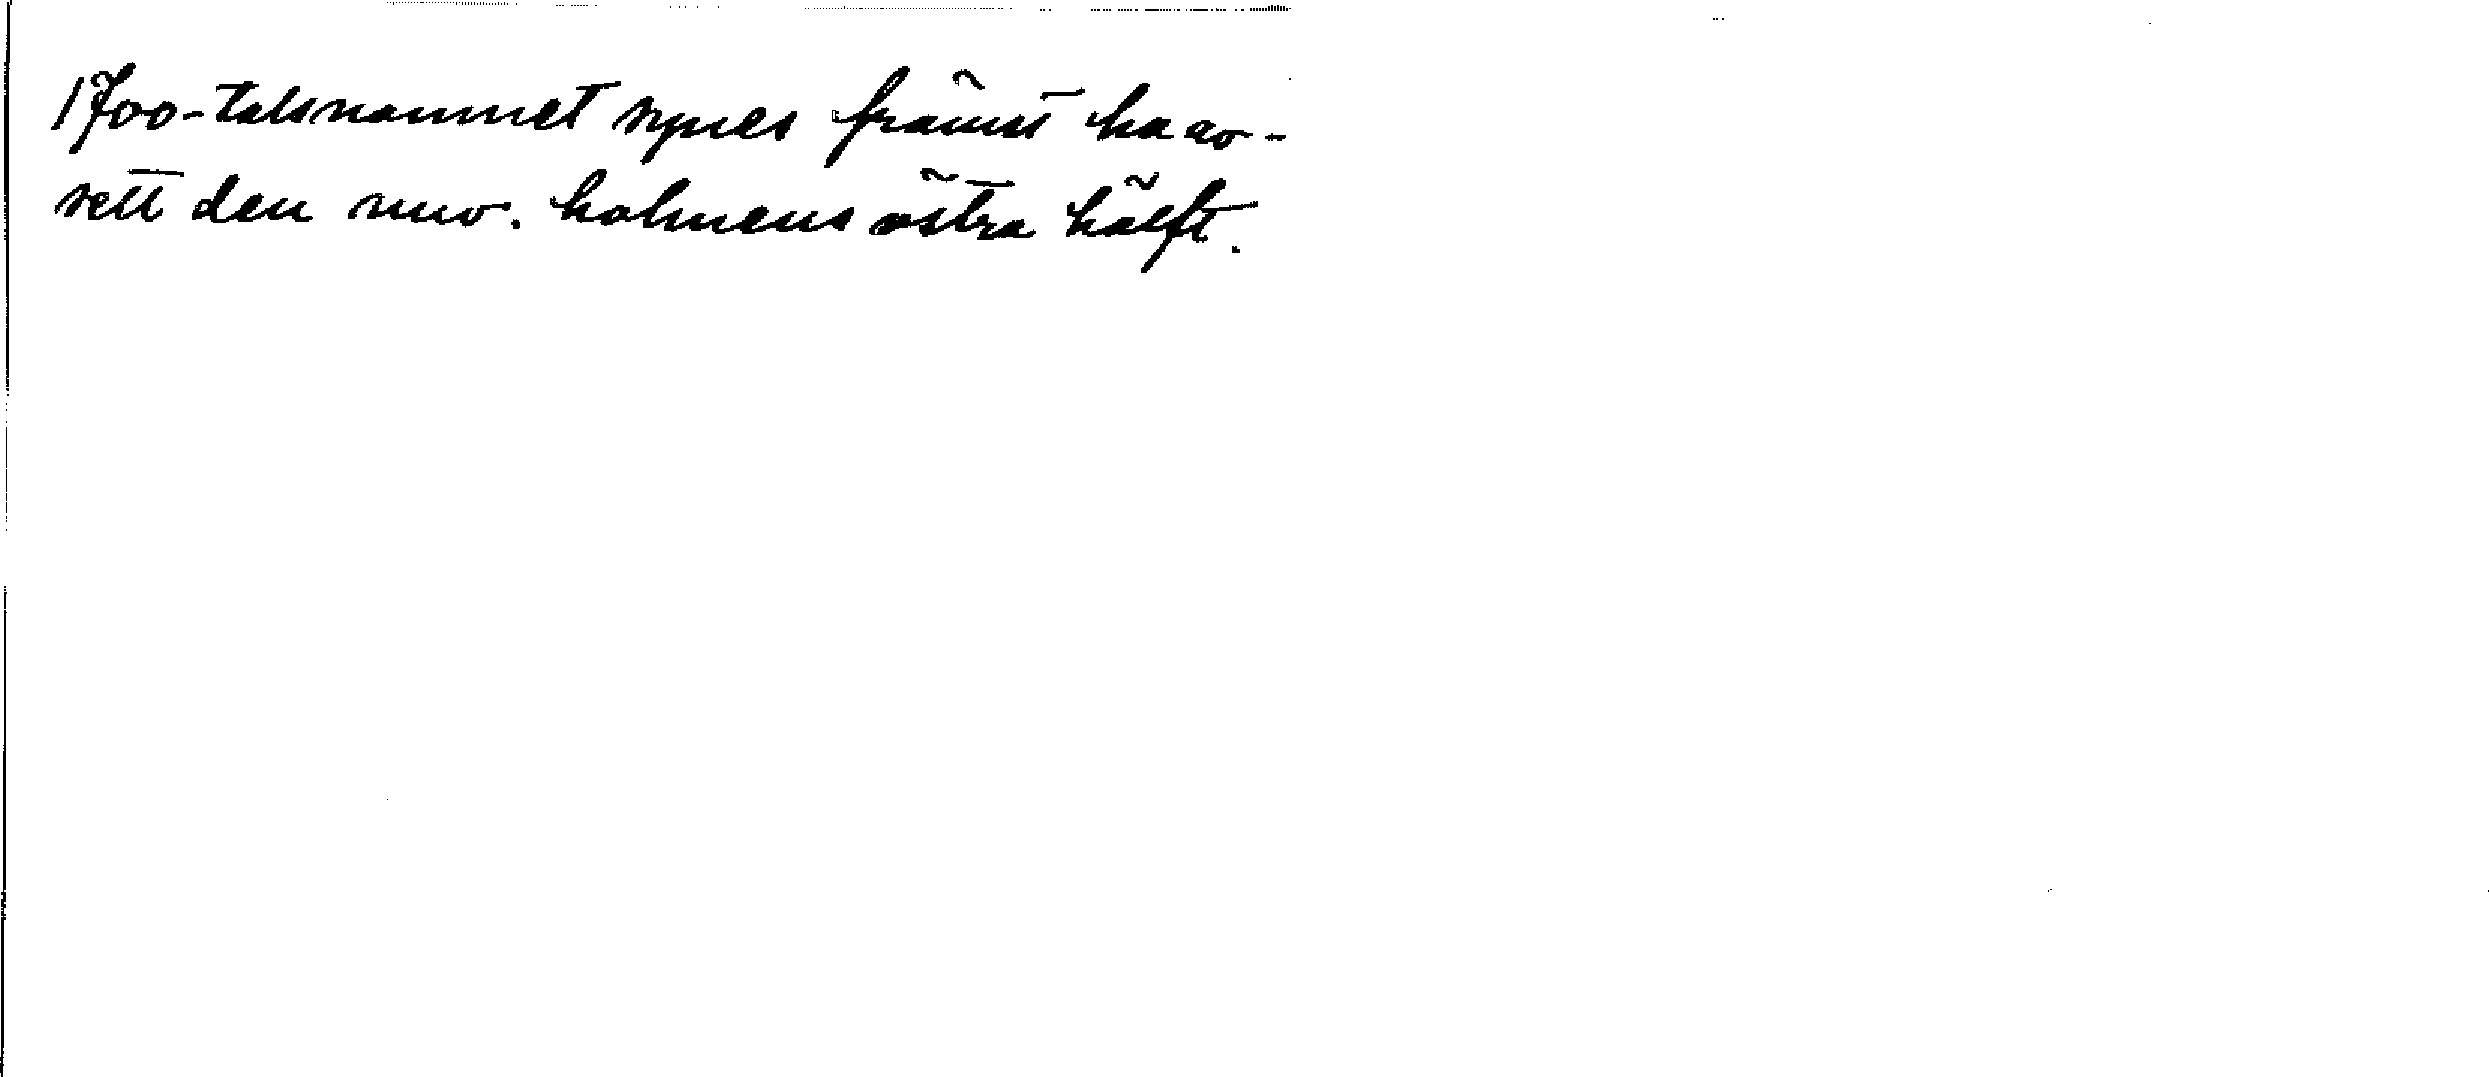 1700-talsnamnet synes främst ha av-
sett den nuv. holmens östra hälft.